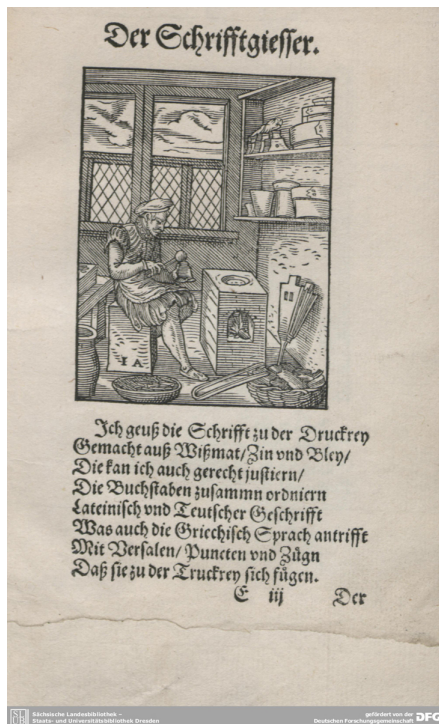 Der Schrifftgiesser.
IA
Ich geuß die Schrifft zu der Druckrey
Gemacht auß Wißmat/ Zin vnd Bley/
Die kan ich auch gerecht justiern/
Die Buchstaben zusammn ordniern
Lateinisch vnd Teutscher Geschrifft
Was auch die Griechisch Sprach antrifft
Mit Versalen/ Puncten vnd Zügn
Daß sie zu der Truckrey sich fügen.
E iij Der
Sächsische Landesbibliothek –
Staats- und Universitätsbibliothek Dresden
gefördert von der
Deutschen Forschungsgemeinschaft
DFG